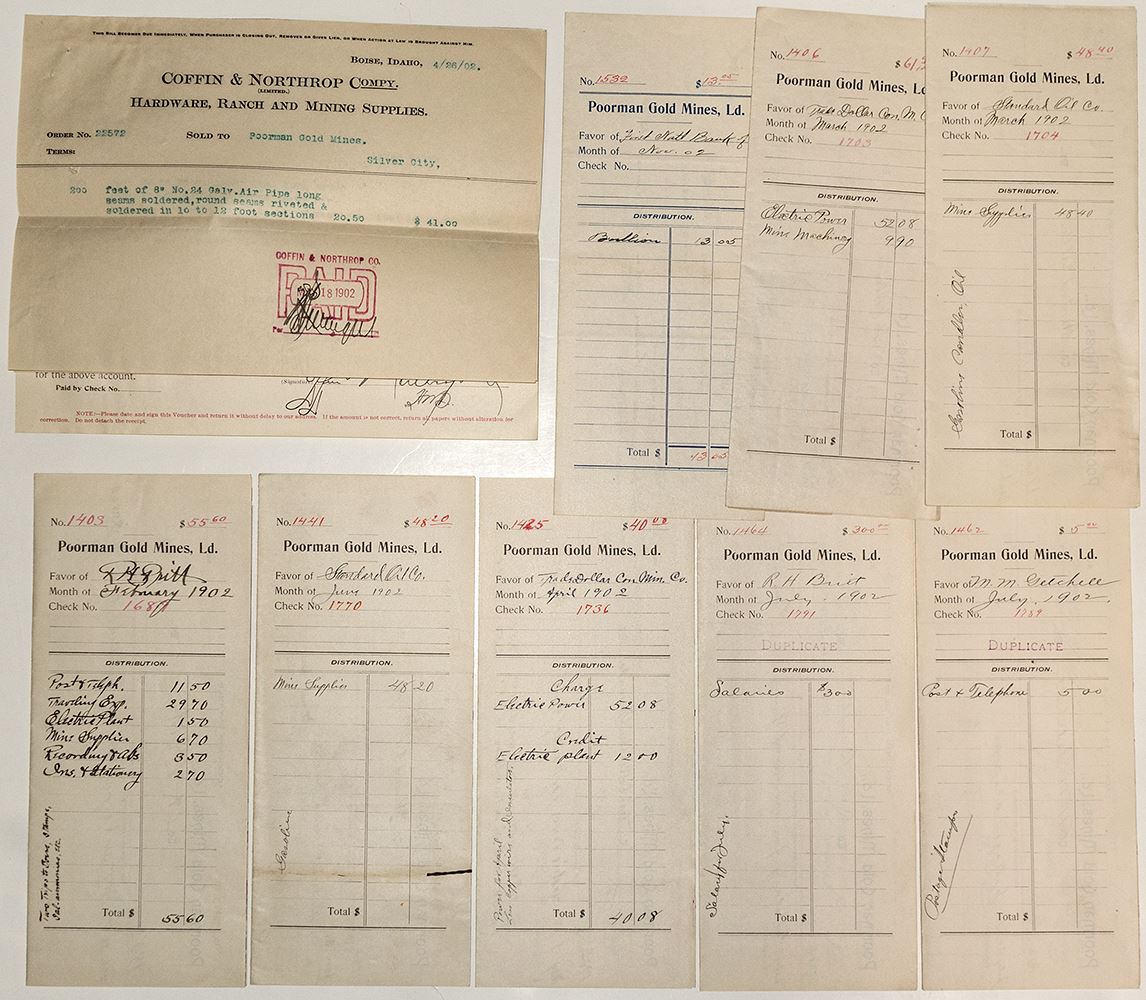 THIS BILL BECOMES DUE IMMEDIATELY, WHEN PURCHASER IS CLOSING OUT, REMOVES OR GIVES LIEN, OR WHEN ACTION AT LAW IS BROUGHT AGAINST HIM.
BOISE, IDAHO, 4/26/02.
COFFIN & NORTHROP COMPY.
(LIMITED.)
HARDWARE, RANCH AND MINING SUPPLIES.
ORDER NO. 22572 SOLD TO Poorman Gold Mines.
TERMS: Silver City,
200 feet of 8" No.24 Galv.Air Pipe long
seams soldered,round seams riveted &
soldered in 10 to 12 foot sections 20.50 $ 41.00
COFFIN & NORTHROP CO.
PAID
18 1902
Per
for the above account.
Paid by Check No.
NOTE:—Please date and sign this Voucher and return it without delay to our address. If the amount is not correct, return all papers without alteration for
correction. Do not detach the receipt.
No. 1532 $13.05
Poorman Gold Mines, Ld.
Favor of First Natl Bank of
Month of Nov. 02
Check No.
DISTRIBUTION.
Bullion 13 05
Total $ 13 05
No. 1406 $61
Poorman Gold Mines, Ld
Favor of Trade Dollar Con. M. C
Month of March 1902
Check No. 1703
DISTRIBUTION.
Electric Power 52 08
Mine Machinery 9 90
Total $
No. 1407 $ 48 40
Poorman Gold Mines, Ld.
Favor of Standard Oil Co.
Month of March 1902
Check No. 1704
DISTRIBUTION.
Mine Supplies 48 40
Gasoline Candles, Oil
Total $
No. 1403 $ 55 60
Poorman Gold Mines, Ld.
Favor of R H Britt
Month of February 1902
Check No.
DISTRIBUTION.
Post & Teleph. 11 50
Traveling Exp. 29 70
Electric Plant 1 50
Mine Supplies 6 70
Recording & Abs 3 50
Ins. & Stationery 2 70
Two Trips to Boise, Stamps,
Total $ 55 60
No. 1441 $ 48 20
Poorman Gold Mines, Ld.
Favor of Standard Oil Co.
Month of June 1902
Check No. 1770
DISTRIBUTION.
Mine Supplies 48 20
Gasoline
Total $
No. 1425 $ 40 08
Poorman Gold Mines, Ld.
Favor of Trade Dollar Con. Min. Co.
Month of April 1902
Check No. 1736
DISTRIBUTION.
Charge
Electric Power 52 08
Credit
Electric plant 12 00
Power for April
Less Copper wire and insulators.
Total $ 40 08
No. 1464 $ 300 00
Poorman Gold Mines, Ld.
Favor of R H Britt
Month of July 1902
Check No. 1791
DUPLICATE
DISTRIBUTION.
Salaries $300
Salary for July.
Total $
No. 1462 $ 5 00
Poorman Gold Mines, Ld.
Favor of M. M. Getchell
Month of July, 1902.
Check No. 1789
DUPLICATE
DISTRIBUTION.
Post & Telephone 5 00
Postage Stamps
Total $